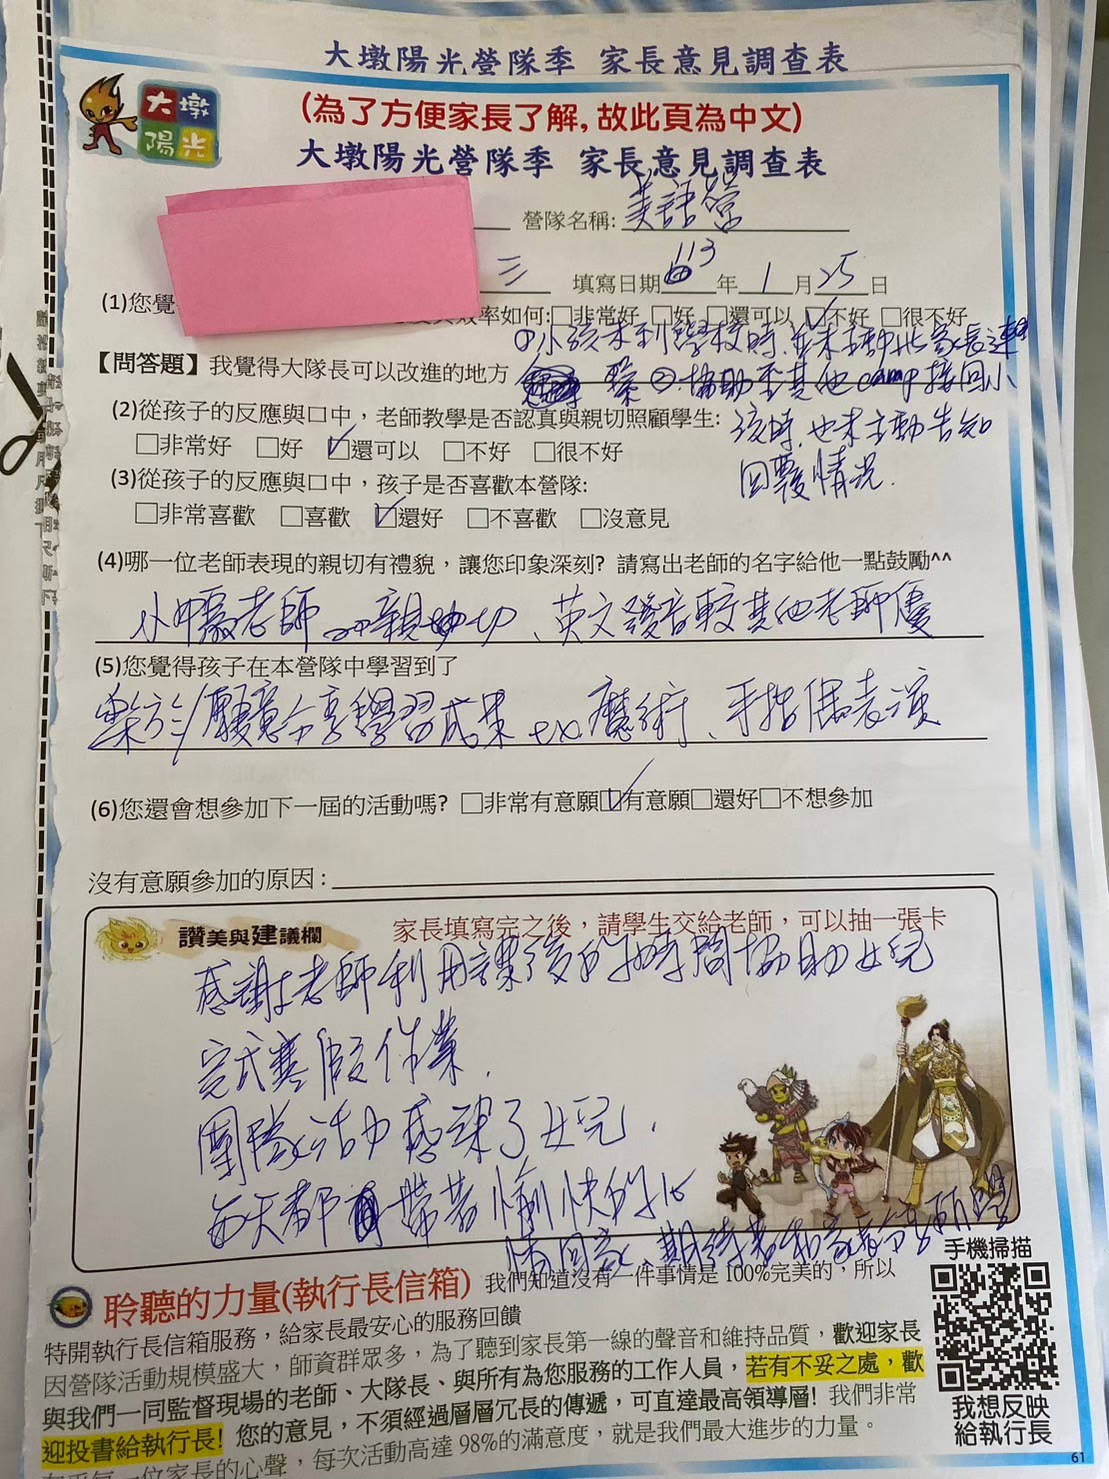 大墩陽光營隊季 家長意見調查表
大墩
陽光
(為了方便家長了解, 故此頁為中文)
大墩陽光營隊季 家長意見調查表
營隊名稱: 美語營
三 填寫日期 113 年 1 月 25 日
(1)您覺 效率如何:□非常好 □好 □還可以 ☑不好 □很不好
①小孩未到學校時,並未主動與家長連
【問答題】我覺得大隊長可以改進的地方 繫②協助去其他camp接回小
(2)從孩子的反應與口中，老師教學是否認真與親切照顧學生: 孩時,也未主動告知
□非常好 □好 ☑還可以 □不好 □很不好
回覆情況.
(3)從孩子的反應與口中，孩子是否喜歡本營隊:
□非常喜歡 □喜歡 ☑還好 □不喜歡 □沒意見
(4)哪一位老師表現的親切有禮貌，讓您印象深刻? 請寫出老師的名字給他一點鼓勵^^
老師 親切、英文發音較其他老師優
(5)您覺得孩子在本營隊中學習到了
樂於/願意分享學習成果 ex 魔術、手指偶表演
(6)您還會想參加下一屆的活動嗎? □非常有意願☑有意願□還好□不想參加
沒有意願參加的原因:
讚美與建議欄 家長填寫完之後，請學生交給老師，可以抽一張卡
感謝老師利用課後的時間協助女兒
完成寒假作業.
團隊活動感染了女兒.
每天都帶著愉快的心
情回家,期待著和家長分享
手機掃描
聆聽的力量(執行長信箱) 我們知道沒有一件事情是 100%完美的，所以
特開執行長信箱服務，給家長最安心的服務回饋
因營隊活動規模盛大，師資群眾多，為了聽到家長第一線的聲音和維持品質，歡迎家長
與我們一同監督現場的老師、大隊長、與所有為您服務的工作人員，若有不妥之處，歡
迎投書給執行長! 您的意見，不須經過層層冗長的傳遞，可直達最高領導層! 我們非常
位家長的心聲，每次活動高達 98%的滿意度，就是我們最大進步的力量。
我想反映
給執行長
61